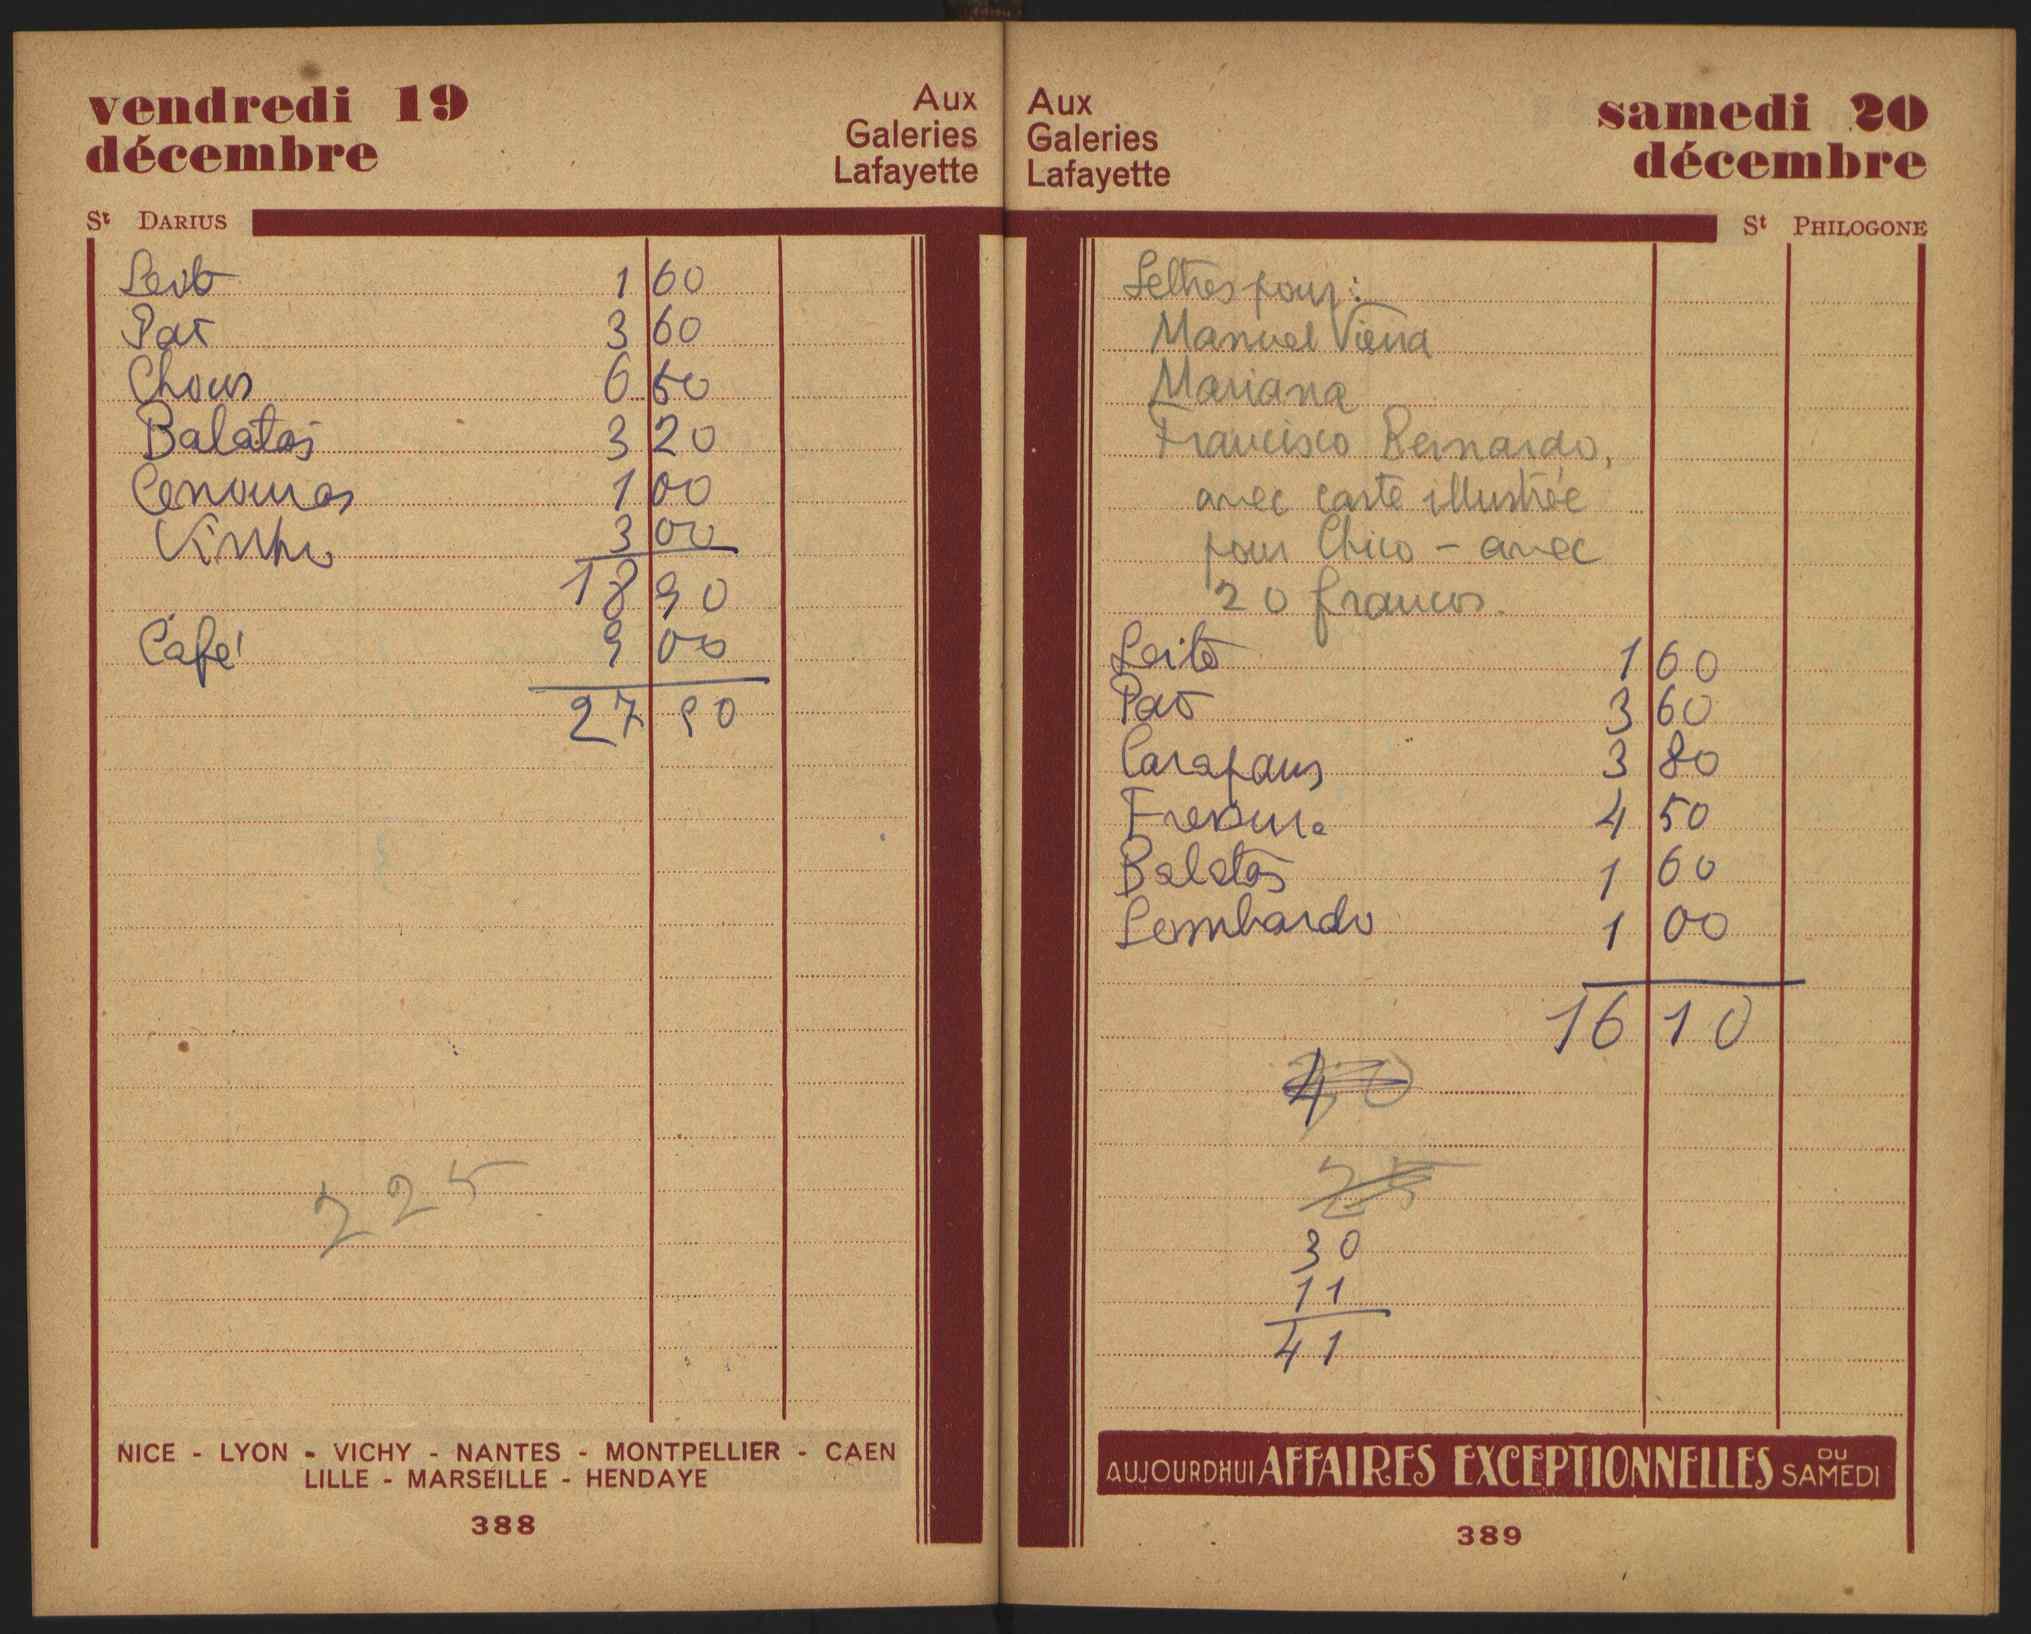 vendredi 19
décembre
Aux
Galeries
Lafayette
St DARIUS
Leite 1 60
Pão 3 60
Chous 6 50
Batatas 3 20
Cenouras 1 00
Vinho 3 00
18 90
Café 9 00
27 90
225
NICE - LYON - VICHY - NANTES - MONTPELLIER - CAEN
LILLE - MARSEILLE - HENDAYE
388
Aux
Galeries
Lafayette
samedi 20
décembre
St PHILOGONE
Lettres pour:
Manuel Viena
Mariana
Francisco Bernardo,
avec carte illustrée
pour Chico - avec
20 francos.
Leite 1 60
Pão 3 60
Carapaus 3 80
4 50
Batatas 1 60
Lombardo 1 00
16 10
40
25
30
11
41
AUJOURDHUI AFFAIRES EXCEPTIONNELLES DU SAMEDI
389